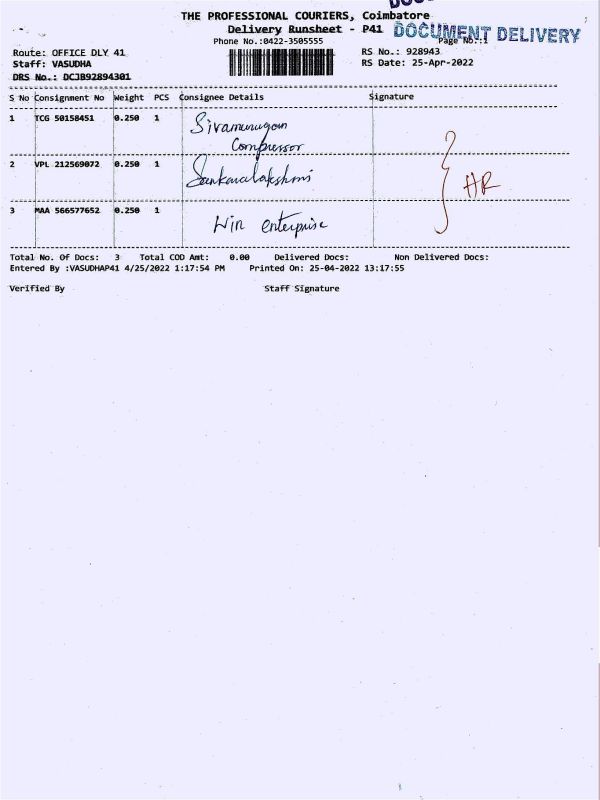 THE PROFESSIONAL COURIERS, Coimbatore
Delivery Runsheet - P41
DOCUMENT DELIVERY
Phone No.:0422-3505555
Page No.:1
Route: OFFICE DLY 41
RS No.: 928943
Staff: VASUDHA
RS Date: 25-Apr-2022
DRS No.: DCJB92894301
S No Consignment No Weight PCS Consignee Details Signature
1 TCG 50158451 0.250 1 Sivamurugan
Compressor
2 VPL 212569072 0.250 1 Sankaralakshmi
HR
3 MAA 566577652 0.250 1 Win enterprise
Total No. Of Docs: 3 Total COD Amt: 0.00 Delivered Docs: Non Delivered Docs:
Entered By :VASUDHAP41 4/25/2022 1:17:54 PM Printed On: 25-04-2022 13:17:55
Verified By Staff Signature